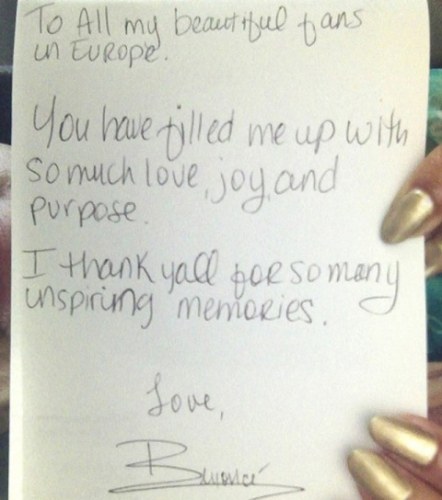 To All my beautiful fans
in EUROPE.
You have filled me up with
so much love, joy, and
purpose.
I thank yall for so many
inspiring memories.
Love,
Beyoncé